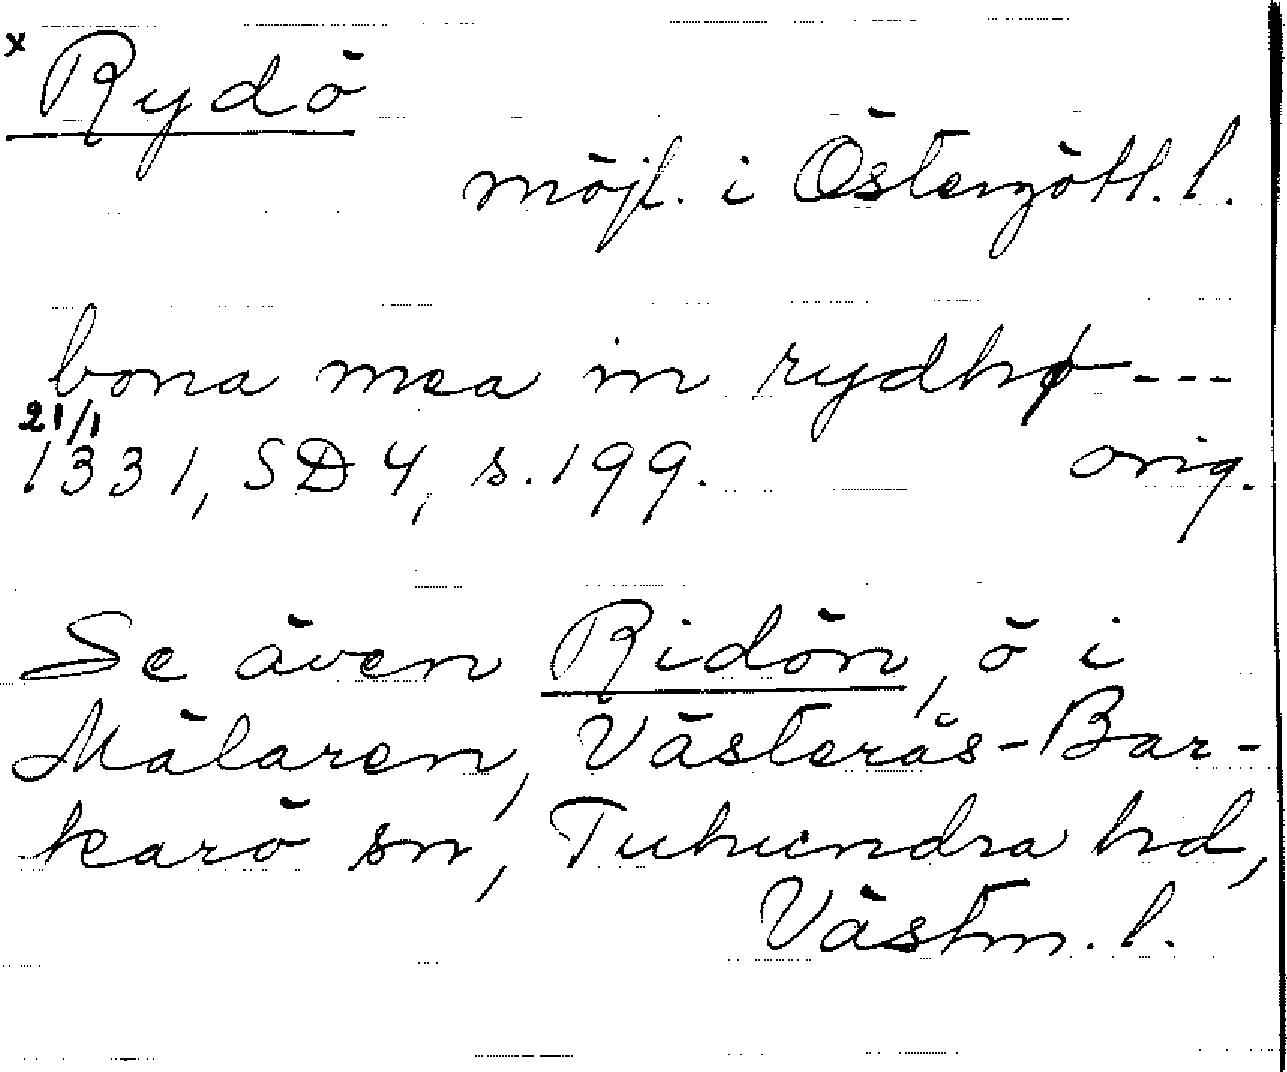 x Rydö
möjl. i Östergötl. l.
bona mea in rydhø ---
21/1
1331, SD 4, s. 199. orig.
Se även Ridön, ö i
Mälaren, Västerås-Bar-
karö sn, Tuhundra hd,
Västm. l.